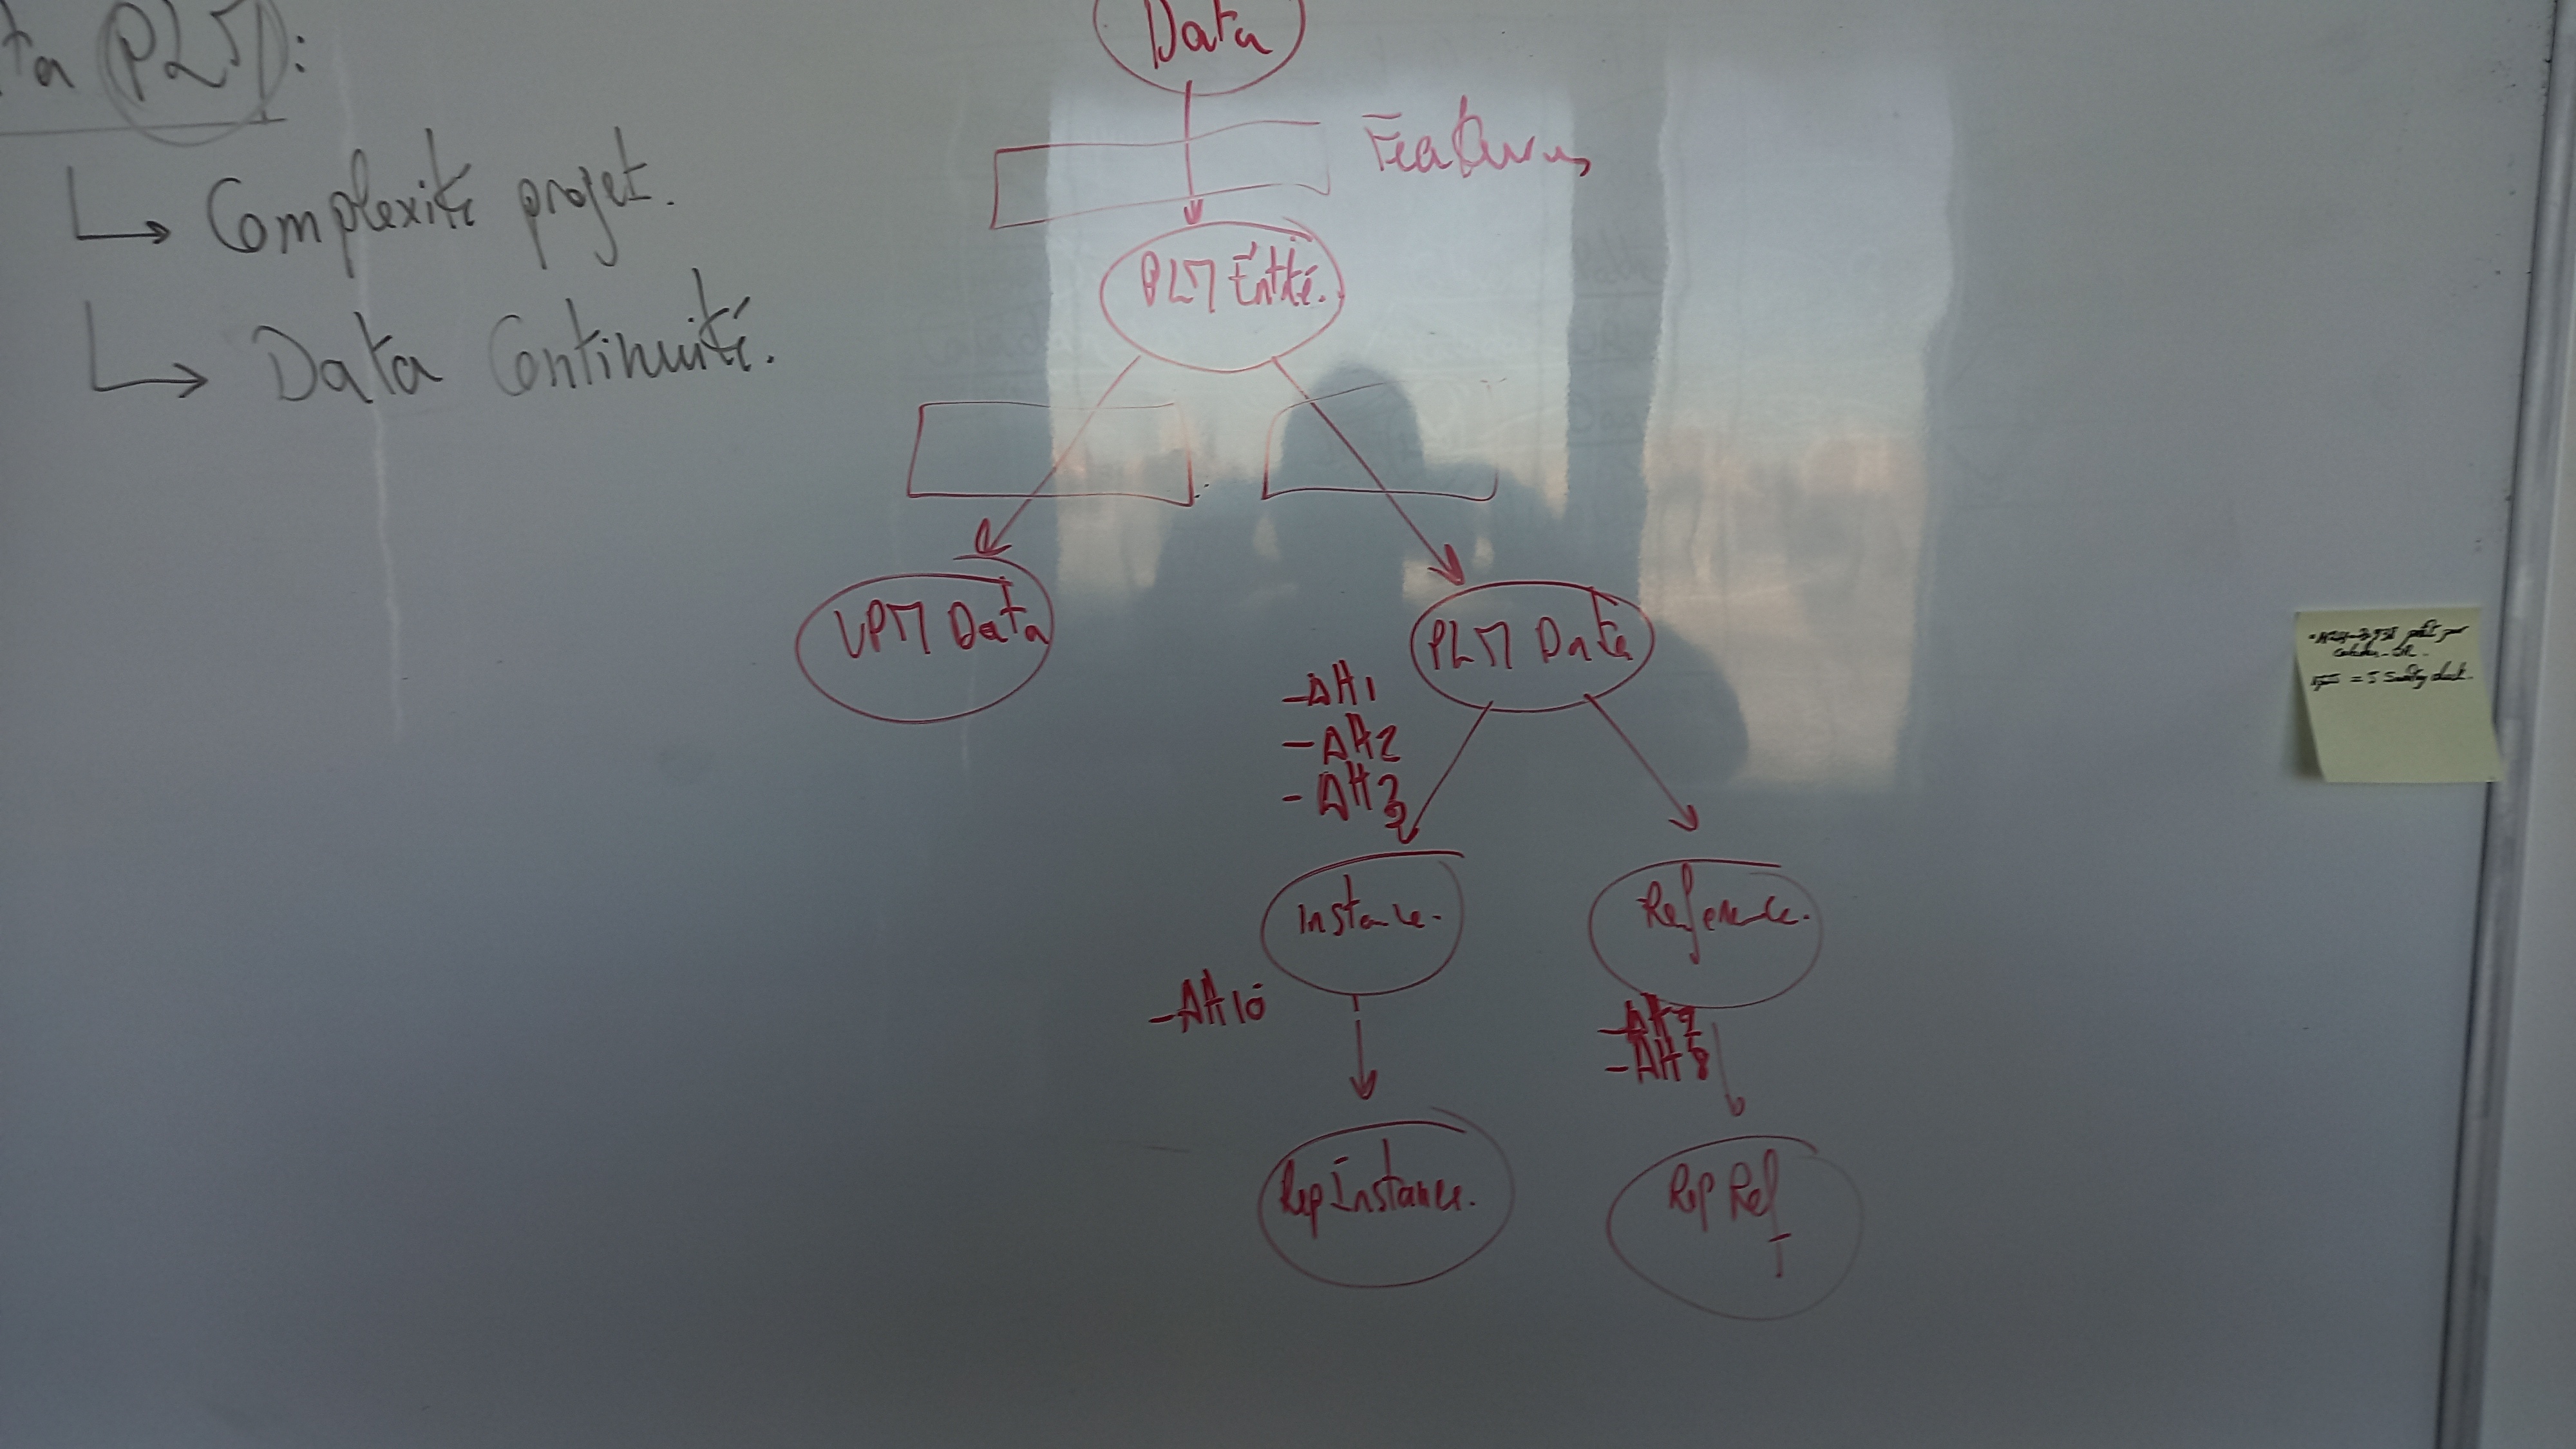 ta PLM :
Complexité projet.
Data Continuité.
Data
Features
PLM Entité.
VPM Data
PLM Data
- Att1
- Att2
- Att3
Instance.
Reference.
- Att10
- Att9
- Att8
Rep Instance.
Rep Ref